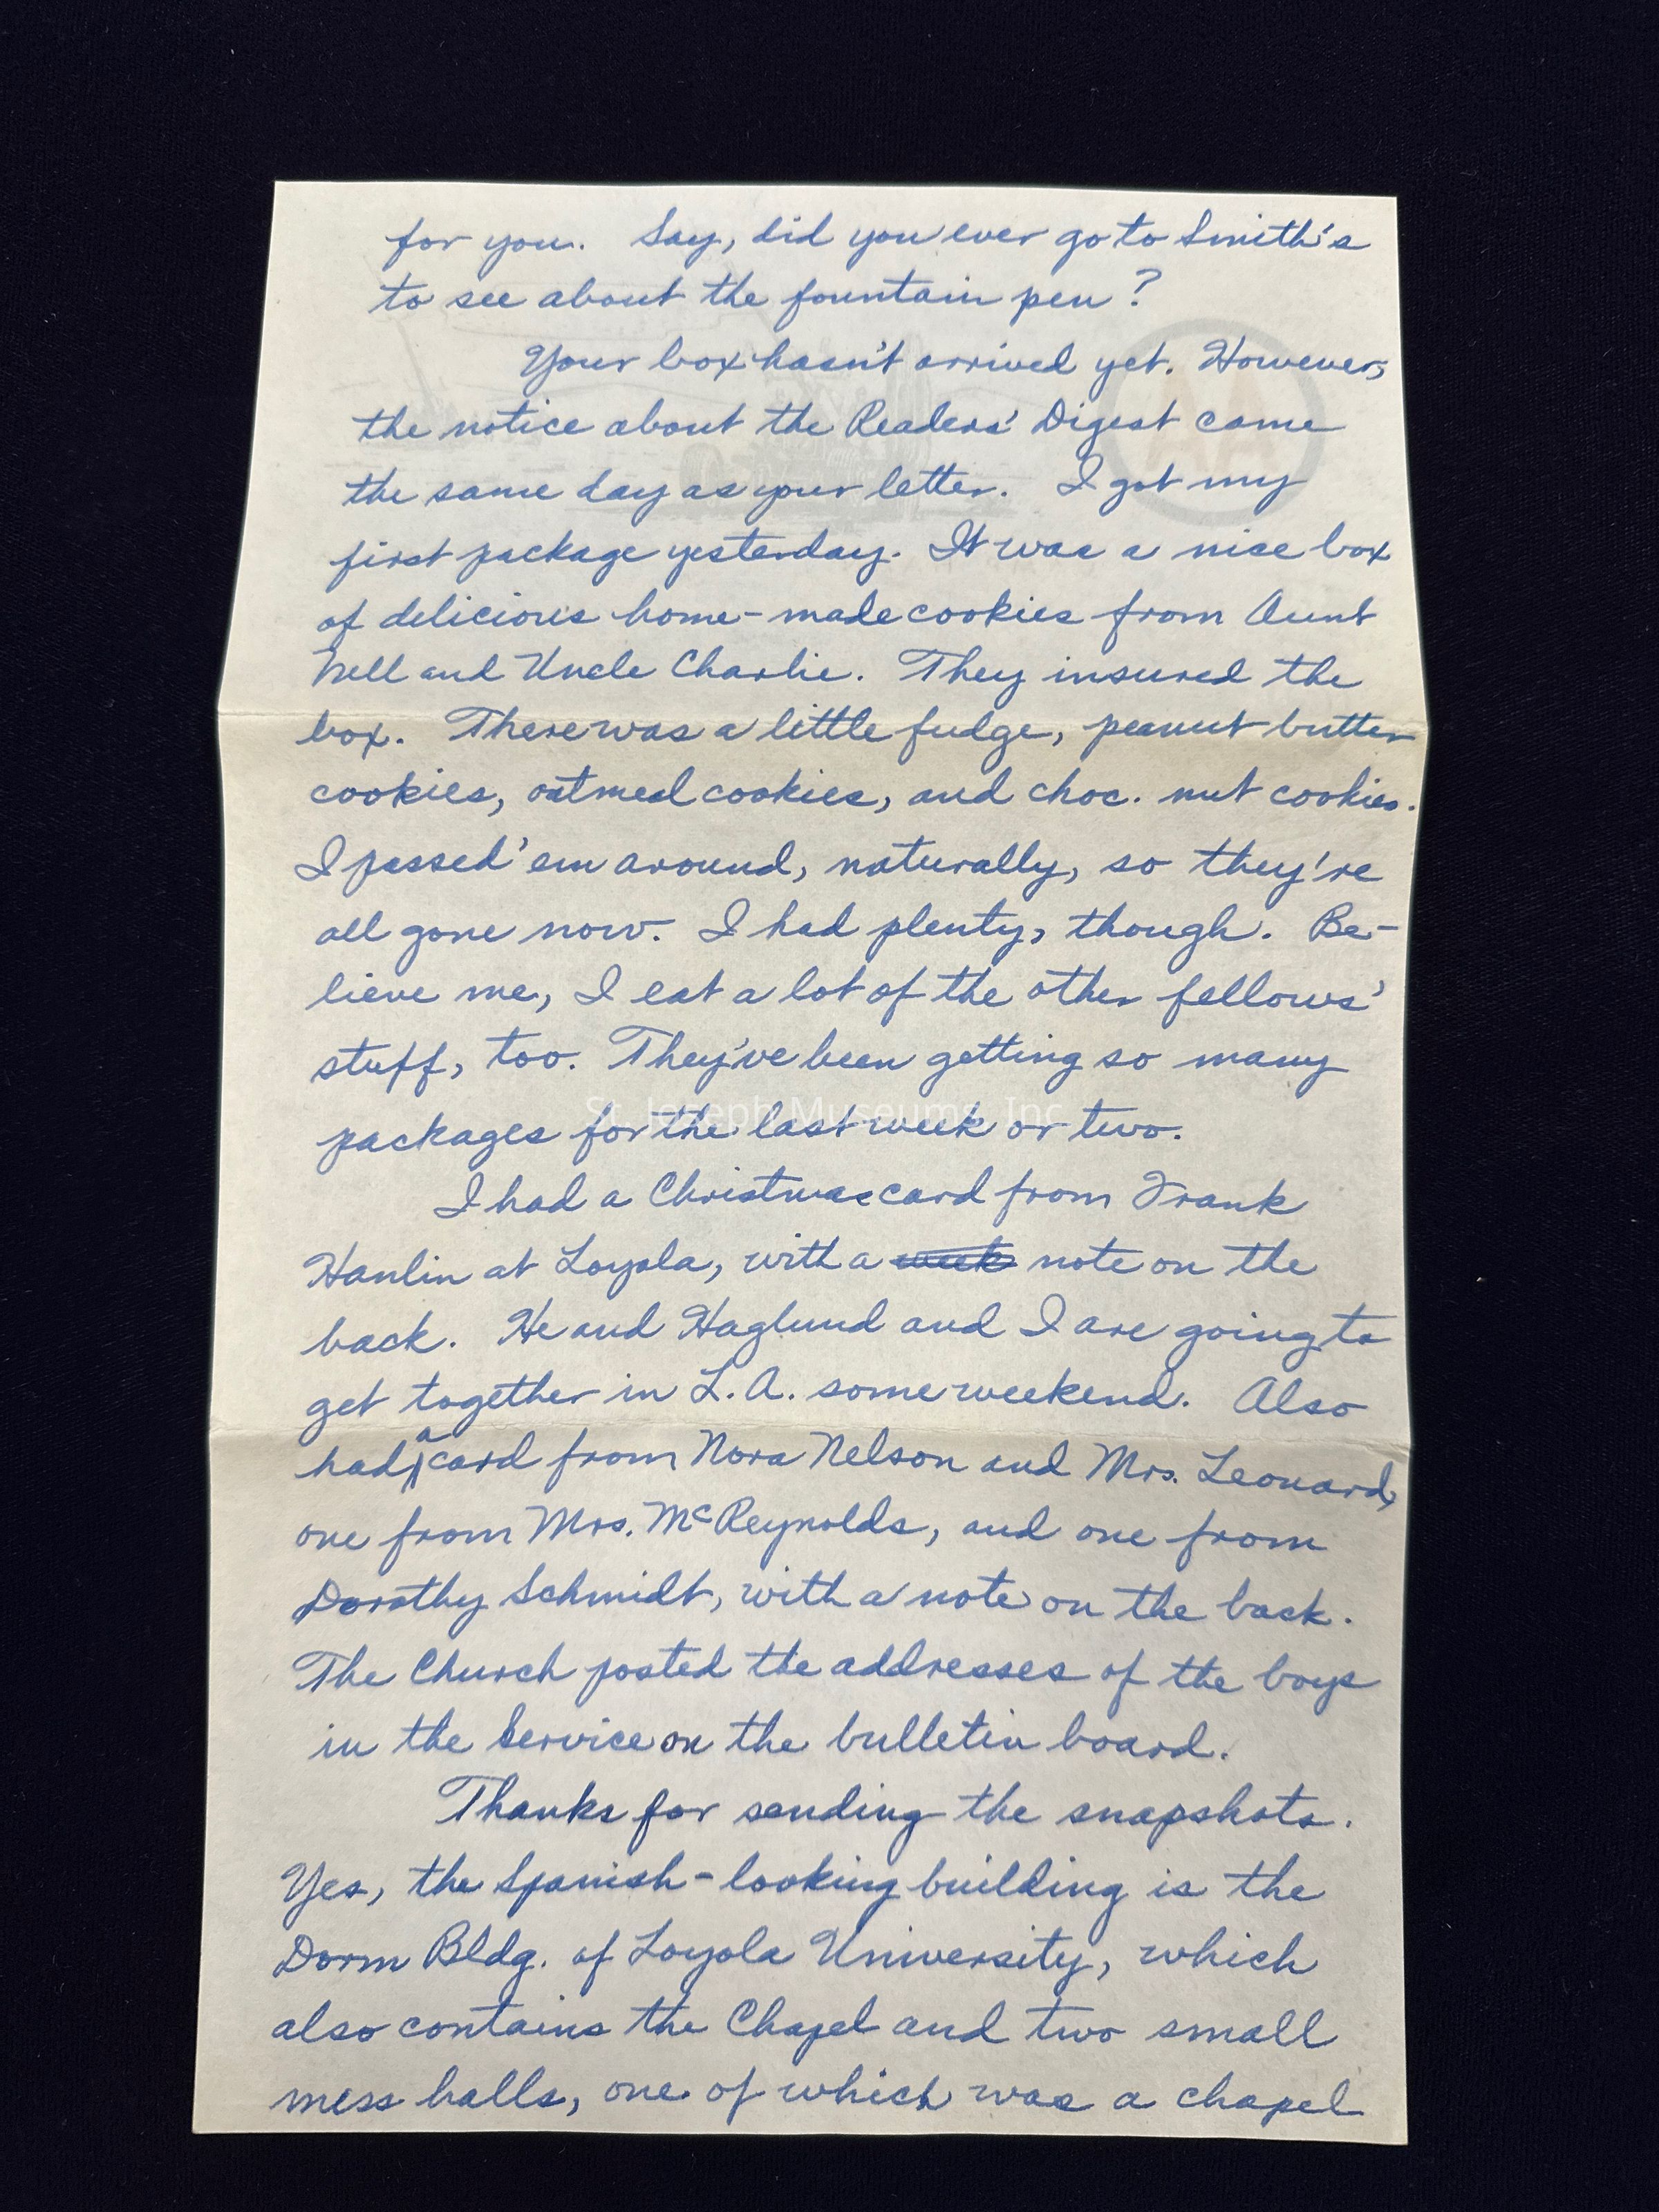 for you. Say, did you ever go to Smith's
to see about the fountain pen?
Your box hasn't arrived yet. However,
the notice about the Readers' Digest came
the same day as your letter. I got my
first package yesterday. It was a nice box
of delicious home-made cookies from Aunt
Nell and Uncle Charlie. They insured the
box. There was a little fudge, peanut butter
cookies, oatmeal cookies, and choc. nut cookies.
I passed 'em around, naturally, so they're
all gone now. I had plenty, though. Be-
lieve me, I eat a lot of the other fellows'
stuff, too. They've been getting so many
St. Joseph Museums, Inc
packages for the last week or two.
I had a Christmas card from Frank
Hanlin at Loyola, with a week note on the
back. He and Haglund and I are going to
get together in L.A. some weekend. Also
had a card from Nora Nelson and Mrs. Leonard,
one from Mrs. McReynolds, and one from
Dorothy Schmidt, with a note on the back.
The Church posted the addresses of the boys
in the Service on the bulletin board.
Thanks for sending the snapshots.
Yes, the Spanish-looking building is the
Dorm Bldg. of Loyola University, which
also contains the Chapel and two small
mess halls, one of which was a chapel
AA